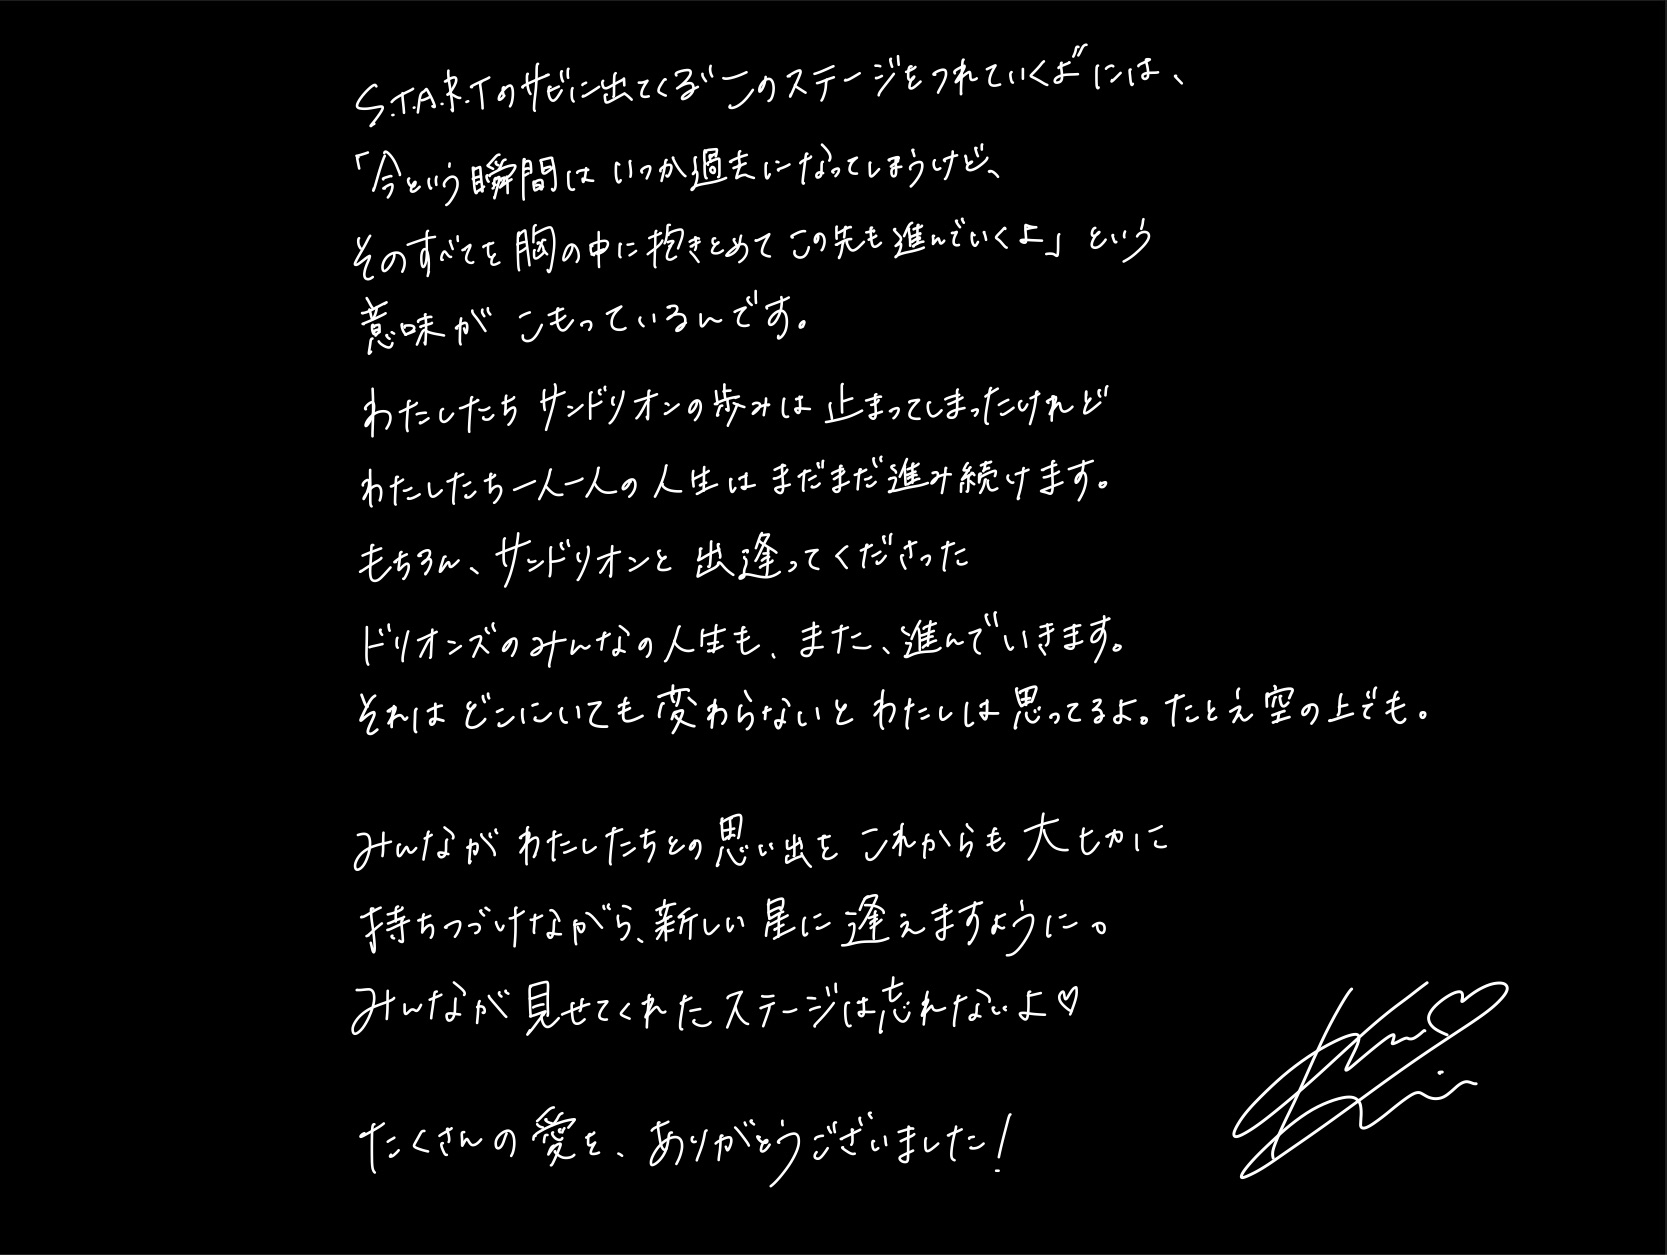 S.T.A.R.Tのサビに出てくる“このステージをつれていくよ”には、
「今という瞬間はいつか過去になってしまうけど、
そのすべてを胸の中に抱きとめてこの先も進んでいくよ」という
意味がこもっているんです。
わたしたちサンドリオンの歩みは止まってしまったけれど
わたしたち一人一人の人生はまだまだ進み続けます。
もちろん、サンドリオンと出逢ってくださった
ドリオンズのみんなの人生も、また、進んでいきます。
それはどこにいても変わらないとわたしは思ってるよ。たとえ空の上でも。
みんながわたしたちとの思い出をこれからも大切に
持ちつづけながら、新しい星に逢えますように。
みんなが見せてくれたステージは忘れないよ♡
たくさんの愛を、ありがとうございました!